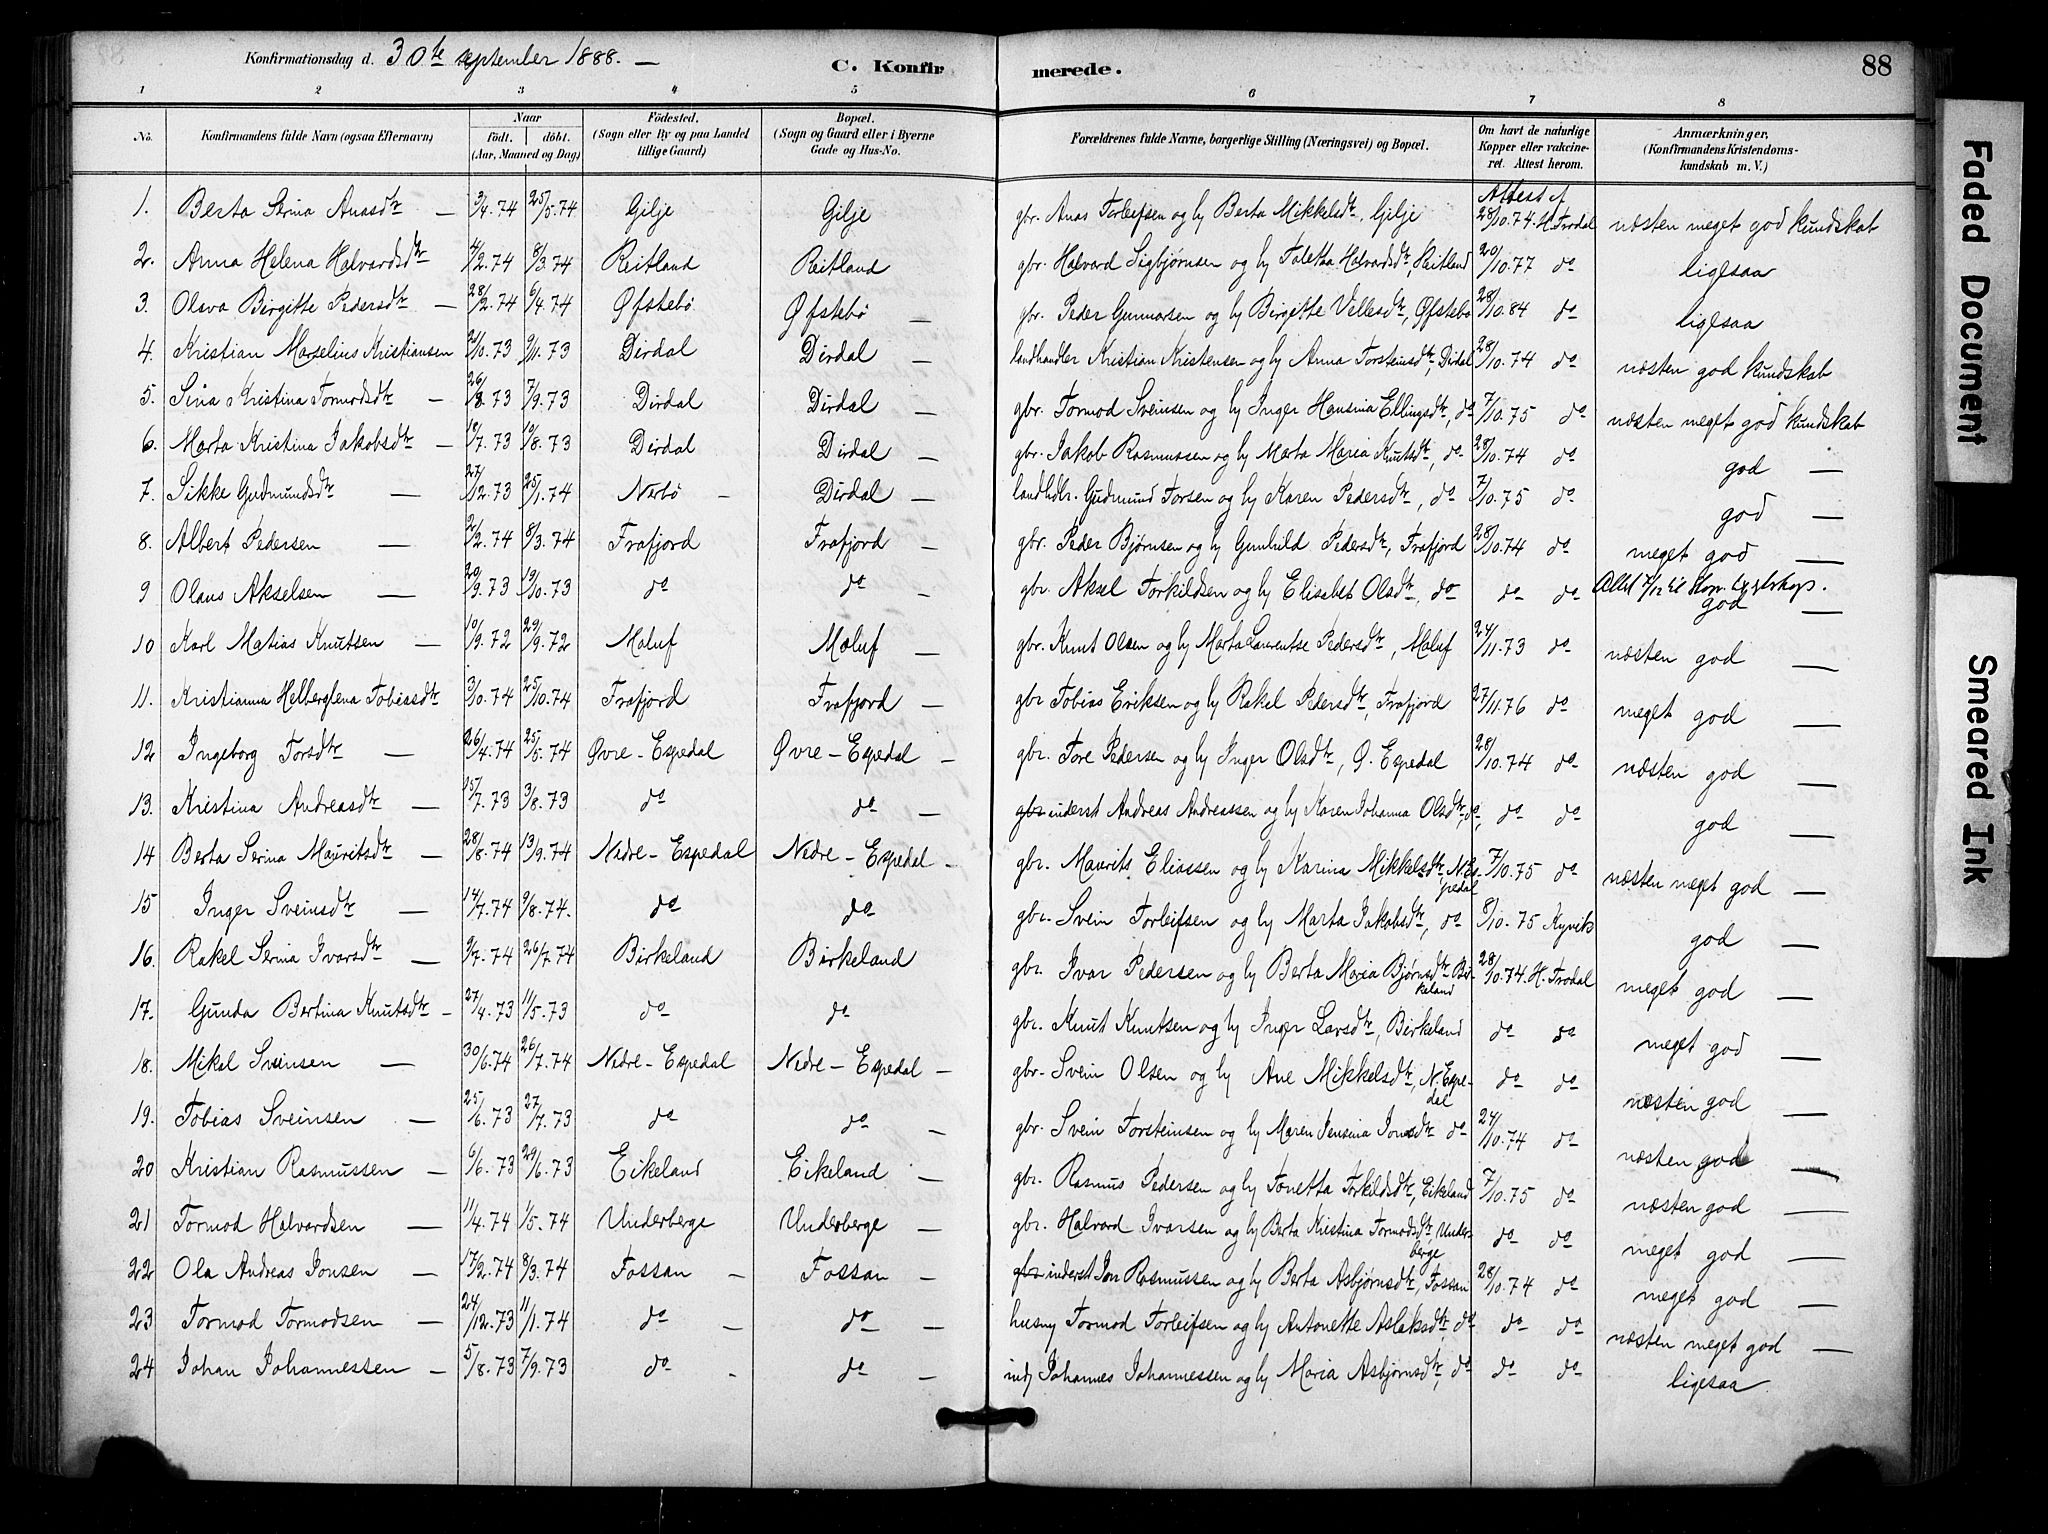 Konfirmationsdag d. 30te september 1888. — C. Konfirmerede. 88
1 2 3 4 5 6 7 8
No. Konfirmandens fulde Navn (ogsaa Efternavn) Naar födt. döbt. (Aar, Maaned og Dag) Födested. (Sogn eller By og paa Landet tillige Gaard) Bopæl. (Sogn og Gaard eller i Byerne Gade og Hus-No. Forældrenes fulde Navne, borgerlige Stilling (Næringsvei) og Bopæl. Om havt de naturlige Kopper eller vakcineret. Attest herom. Anmærkninger, (Konfirmandens Kristendomskundskab m. V.)
1. Berta Serina Anasdtr — 3/4.74 25/5.74 Gilje Gilje gbr. Anas Torleifsen og hu Berta Mikkelsdtr, Gilje Attest af 28/10.74. H. Trodal næsten meget god kundskab
2. Anna Helena Halvardsdtr 4/2.74 8/3.74 Reitland Reitland gbr. Halvard Sigbjørnsen og hu Taletha Halvardsdtr, Reitland 20/10.77 do ligesaa
3. Olava Birgitte Pedersdtr — 28/2.74 6/4.74 Øfstebö Øfstebö — gbr. Peder Gunnarsen og hu Birgitte Villesdtr, Øfstebö 28/10.84 do ligesaa
4. Kristian Marselius Kristiansen 21/10.73 9/11.73 Dirdal Dirdal — landhandler Kristian Kristensen og hu Anna Torsteinsdtr, Dirdal 28/10.74 do næsten god kundskab
5. Sina Kristina Tormodsdtr — 26/8.73 7/9.73 Dirdal Dirdal — gbr. Tormod Sveinsen og hu Inger Hansina Ellingsdtr, do 7/10.75 do næsten meget god kundskab
6. Marta Kristina Jakobsdtr — 10/7.73 10/8.73 Dirdal Dirdal — gbr. Jakob Rasmussen og hu Marta Maria Knutsdtr, do 28/10.74 do god —
7. Sikke Gudmundsdtr — 27/12.73 25/1.74 Nerbö — Dirdal — landhdlr. Gudmund Torsen og hu Karen Pedersdtr, do 7/10.75 do god —
8. Albert Pedersen — 2/2.74 8/3.74 Frafjord Frafjord — gbr. Peder Bjørnsen og hu Gunhild Pedersdtr, Frafjord 28/10.74 do meget god —
9 Olaus Akselsen — 20/9.73 19/10.73 do do — gbr. Aksel Torkildsen og hu Elisabet Olsdtr, do do do god —
10 Karl Matias Knutsen — 10/9.72 29/9.72 Maluf Maluf — gbr. Knut Olsen og hu Marta Laurentse Pedersdtr, Maluf 24/11.73 do næsten god —
11. Kristianna Helberglena Tobiasdtr 3/10.74 25/10.74 Frafjord Frafjord — gbr Tobias Eriksen og hu Rakel Pedersdtr, Frafjord 27/11.76 do meget god —
12 Ingeborg Torsdtr — 26/4.74 25/5.74 Øvre-Espedal Øvre-Espedal — gbr. Tore Pedersen og hu Inger Olsdtr, Ø. Espedal 28/10.74 do næsten god —
13. Kristina Andreasdtr — 15/7.73 3/8.73 do do — gbr inderst Andreas Andreassen og hu Karen Johanna Olsdtr, do, do do god —
14 Berta Serina Mauritsdtr — 28/8.74 13/9.74 Nedre-Espedal Nedre-Espedal — gbr. Maurits Eliassen og hu Karina Mikkelsdtr, N. Espedal 7/10.75 do næsten meget god —
15 Inger Sveinsdtr — 14/7.74 9/8.74. do do gbr. Svein Torleifsen og hu Marta Jakobsdtr, do 8/10.75 Kyvik god —
16. Rakel Serina Ivarsdtr — 9/7.74 26/7.74 Birkeland Birkeland gbr. Ivar Pedersen og hu Berta Maria Bjørnsdtr Birkeland 28/10.74. H. Trodal meget god —
17. Gunda Bertina Knutsdtr — 27/4.73 11/5.73 do do gbr. Knut Knutsen og hu Inger Larsdtr, Birkeland do do meget god —
18. Mikal Sveinsen — 30/6.74 26/7.74 Nedre-Espedal Nedre-Espedal — gbr. Svein Olsen og hu Ane Mikkelsdtr, N. Espedal do do næsten god —
19. Tobias Sveinsen — 25/6.73 27/7.73 do do — gbr. Svein Torsteinsen og hu Maren Jensina Jonsdtr do 24/10.74 do næsten god —
20 Kristian Rasmussen — 6/6.73 29/6.73 Eikeland Eikeland — gbr. Rasmus Pedersen og hu Tonetta Torkildsdtr, Eikeland 7/10.75 do næsten god —
21 Tormod Halvardsen — 11/4.74 1/5.74 Underberge Underberge — gbr. Halvard Ivarsen og hu Berta Kristina Tormodsdtr, Underberge do do meget god —
22 Ola Andreas Jonsen — 17/2.74 8/3.74 Fossan — Fossan — gbr inderst Jon Rasmussen og hu Berta Asbjørnsdtr, Fossan 28/10.74 do meget god —
23 Tormod Tormodsen — 24/12.73 11/1.74 do — do — husm Tormod Torleifsen og hu Antonette Aslaksdtr, do do do næsten meget god —
24 Johan Johannessen — 5/8.73 7/9.73 do — do — ind Johannes Johannessen og hu Maria Asbjørnsdtr, do do do ligesaa
Faded Document
Smeared Ink